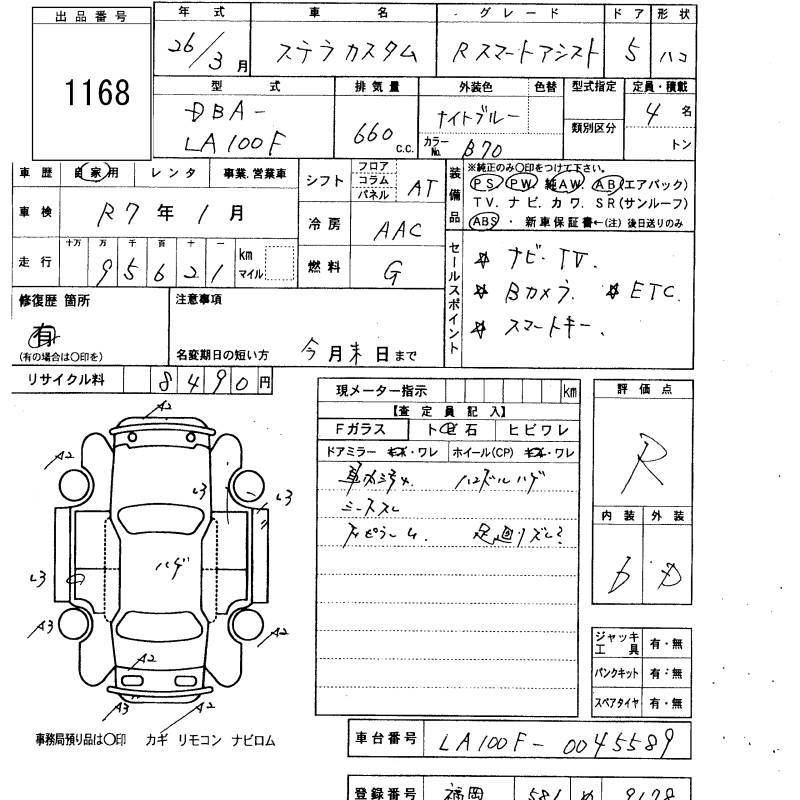 出品番号
1168
年式 車名 グレード ドア 形状
26/3月 ステラカスタム Rスマートアシスト 5 ハコ
型式 排気量 外装色 色替 型式指定 定員・積載
DBA-
LA100F
660 C.C.
ナイトブルー
カラーNo. B70
類別区分
4名
トン
車歴 自家用 レンタ 事業.営業車
車検 R7年1月
走行 十万 万 千 百 十 一
95621 km マイル
シフト フロア コラム パネル AT
冷房 AAC
燃料 G
装備品
※純正のみ○印をつけて下さい。
PS PW 純AW. AB(エアバック)
TV. ナビ. カワ. SR(サンルーフ)
ABS ・ 新車保証書←(注) 後日送りのみ
セールスポイント
☆ ナビ・TV.
☆ Bカメラ. ☆ ETC.
☆ スマートキー.
修復歴 箇所
有
(有の場合は○印を)
注意事項
名変期日の短い方 今月末日まで
リサイクル料 8490円
現メーター指示 km
【査定員記入】
Fガラス トビ石 ヒビワレ
ドアミラー キズ・ワレ ホイール(CP) キズ・ワレ
ハンドルハゲ
評価点
R
内装 外装
b D
A2
A2
L3
L3
L3
ハゲ
A3
A2
A2
A3
A2
ジャッキ工具 有・無
パンクキット 有・無
スペアタイヤ 有・無
事務局預り品は○印 カギ リモコン ナビロム
車台番号 LA100F-0045589
登録番号 福岡 581 め 9178